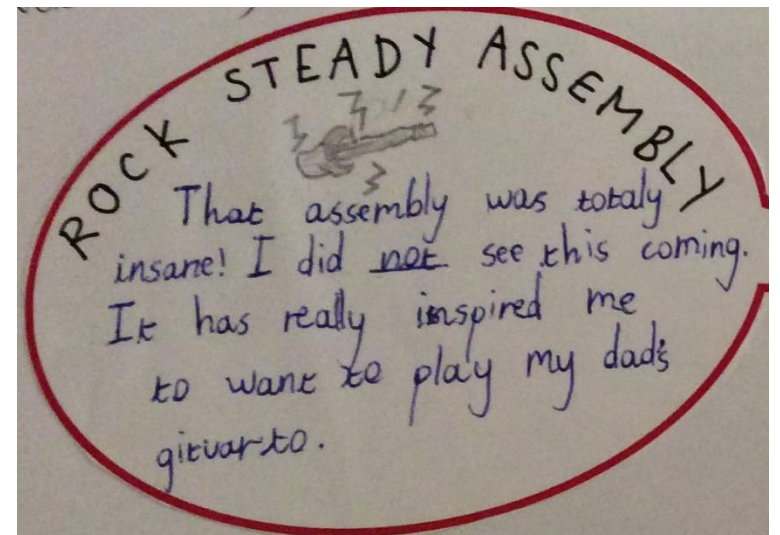 ROCK STEADY ASSEMBLY
That assembly was totaly
insane! I did not see this coming.
It has really inspired me
to want to play my dad's
gituar to.